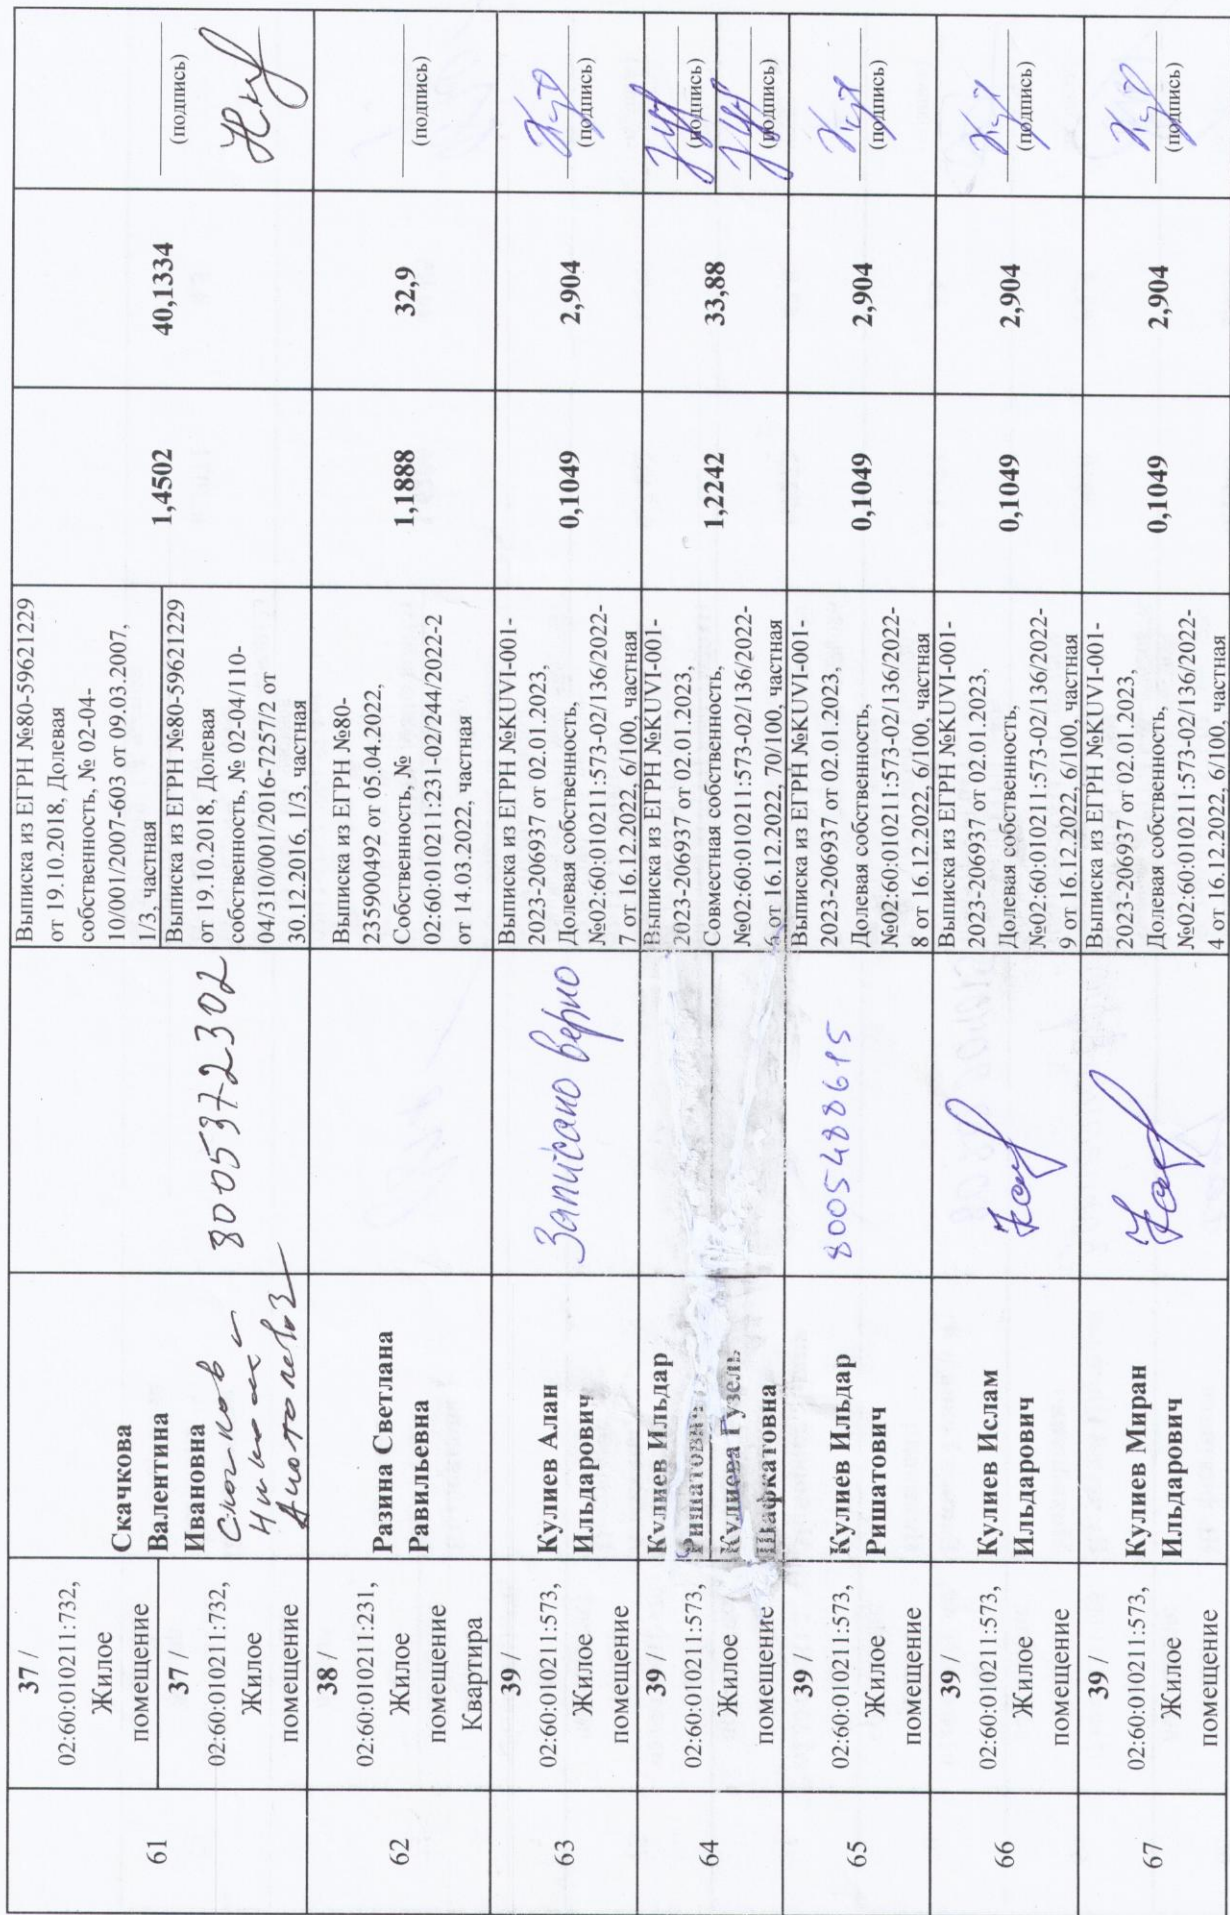 61
37 /
02:60:010211:732,
Жилое
помещение
37 /
02:60:010211:732,
Жилое
помещение
Скачкова
Валентина
Ивановна
Скачков
8005372302
Выписка из ЕГРН №80-59621229
от 19.10.2018, Долевая
собственность, № 02-04-
10/001/2007-603 от 09.03.2007,
1/3, частная
Выписка из ЕГРН №80-59621229
от 19.10.2018, Долевая
собственность, № 02-04/110-
04/310/001/2016-7257/2 от
30.12.2016, 1/3, частная
1,4502
40,1334
(подпись)
62
38 /
02:60:010211:231,
Жилое
помещение
Квартира
Разина Светлана
Равильевна
Выписка из ЕГРН №80-
235900492 от 05.04.2022,
Собственность, №
02:60:010211:231-02/244/2022-2
от 14.03.2022, частная
1,1888
32,9
(подпись)
63
39 /
02:60:010211:573,
Жилое
помещение
Кулиев Алан
Ильдарович
Записано верно
Выписка из ЕГРН №KUVI-001-
2023-206937 от 02.01.2023,
Долевая собственность,
№02:60:010211:573-02/136/2022-
7 от 16.12.2022, 6/100, частная
0,1049
2,904
(подпись)
64
39 /
02:60:010211:573,
Жилое
помещение
Кулиев Ильдар
Ришатович
Кулиева Гузель
Шафкатовна
Выписка из ЕГРН №KUVI-001-
2023-206937 от 02.01.2023,
Совместная собственность,
№02:60:010211:573-02/136/2022-
6 от 16.12.2022, 70/100, частная
1,2242
33,88
(подпись)
(подпись)
65
39 /
02:60:010211:573,
Жилое
помещение
Кулиев Ильдар
Ришатович
8005488615
Выписка из ЕГРН №KUVI-001-
2023-206937 от 02.01.2023,
Долевая собственность,
№02:60:010211:573-02/136/2022-
8 от 16.12.2022, 6/100, частная
0,1049
2,904
(подпись)
66
39 /
02:60:010211:573,
Жилое
помещение
Кулиев Ислам
Ильдарович
Выписка из ЕГРН №KUVI-001-
2023-206937 от 02.01.2023,
Долевая собственность,
№02:60:010211:573-02/136/2022-
9 от 16.12.2022, 6/100, частная
0,1049
2,904
(подпись)
67
39 /
02:60:010211:573,
Жилое
помещение
Кулиев Миран
Ильдарович
Выписка из ЕГРН №KUVI-001-
2023-206937 от 02.01.2023,
Долевая собственность,
№02:60:010211:573-02/136/2022-
4 от 16.12.2022, 6/100, частная
0,1049
2,904
(подпись)